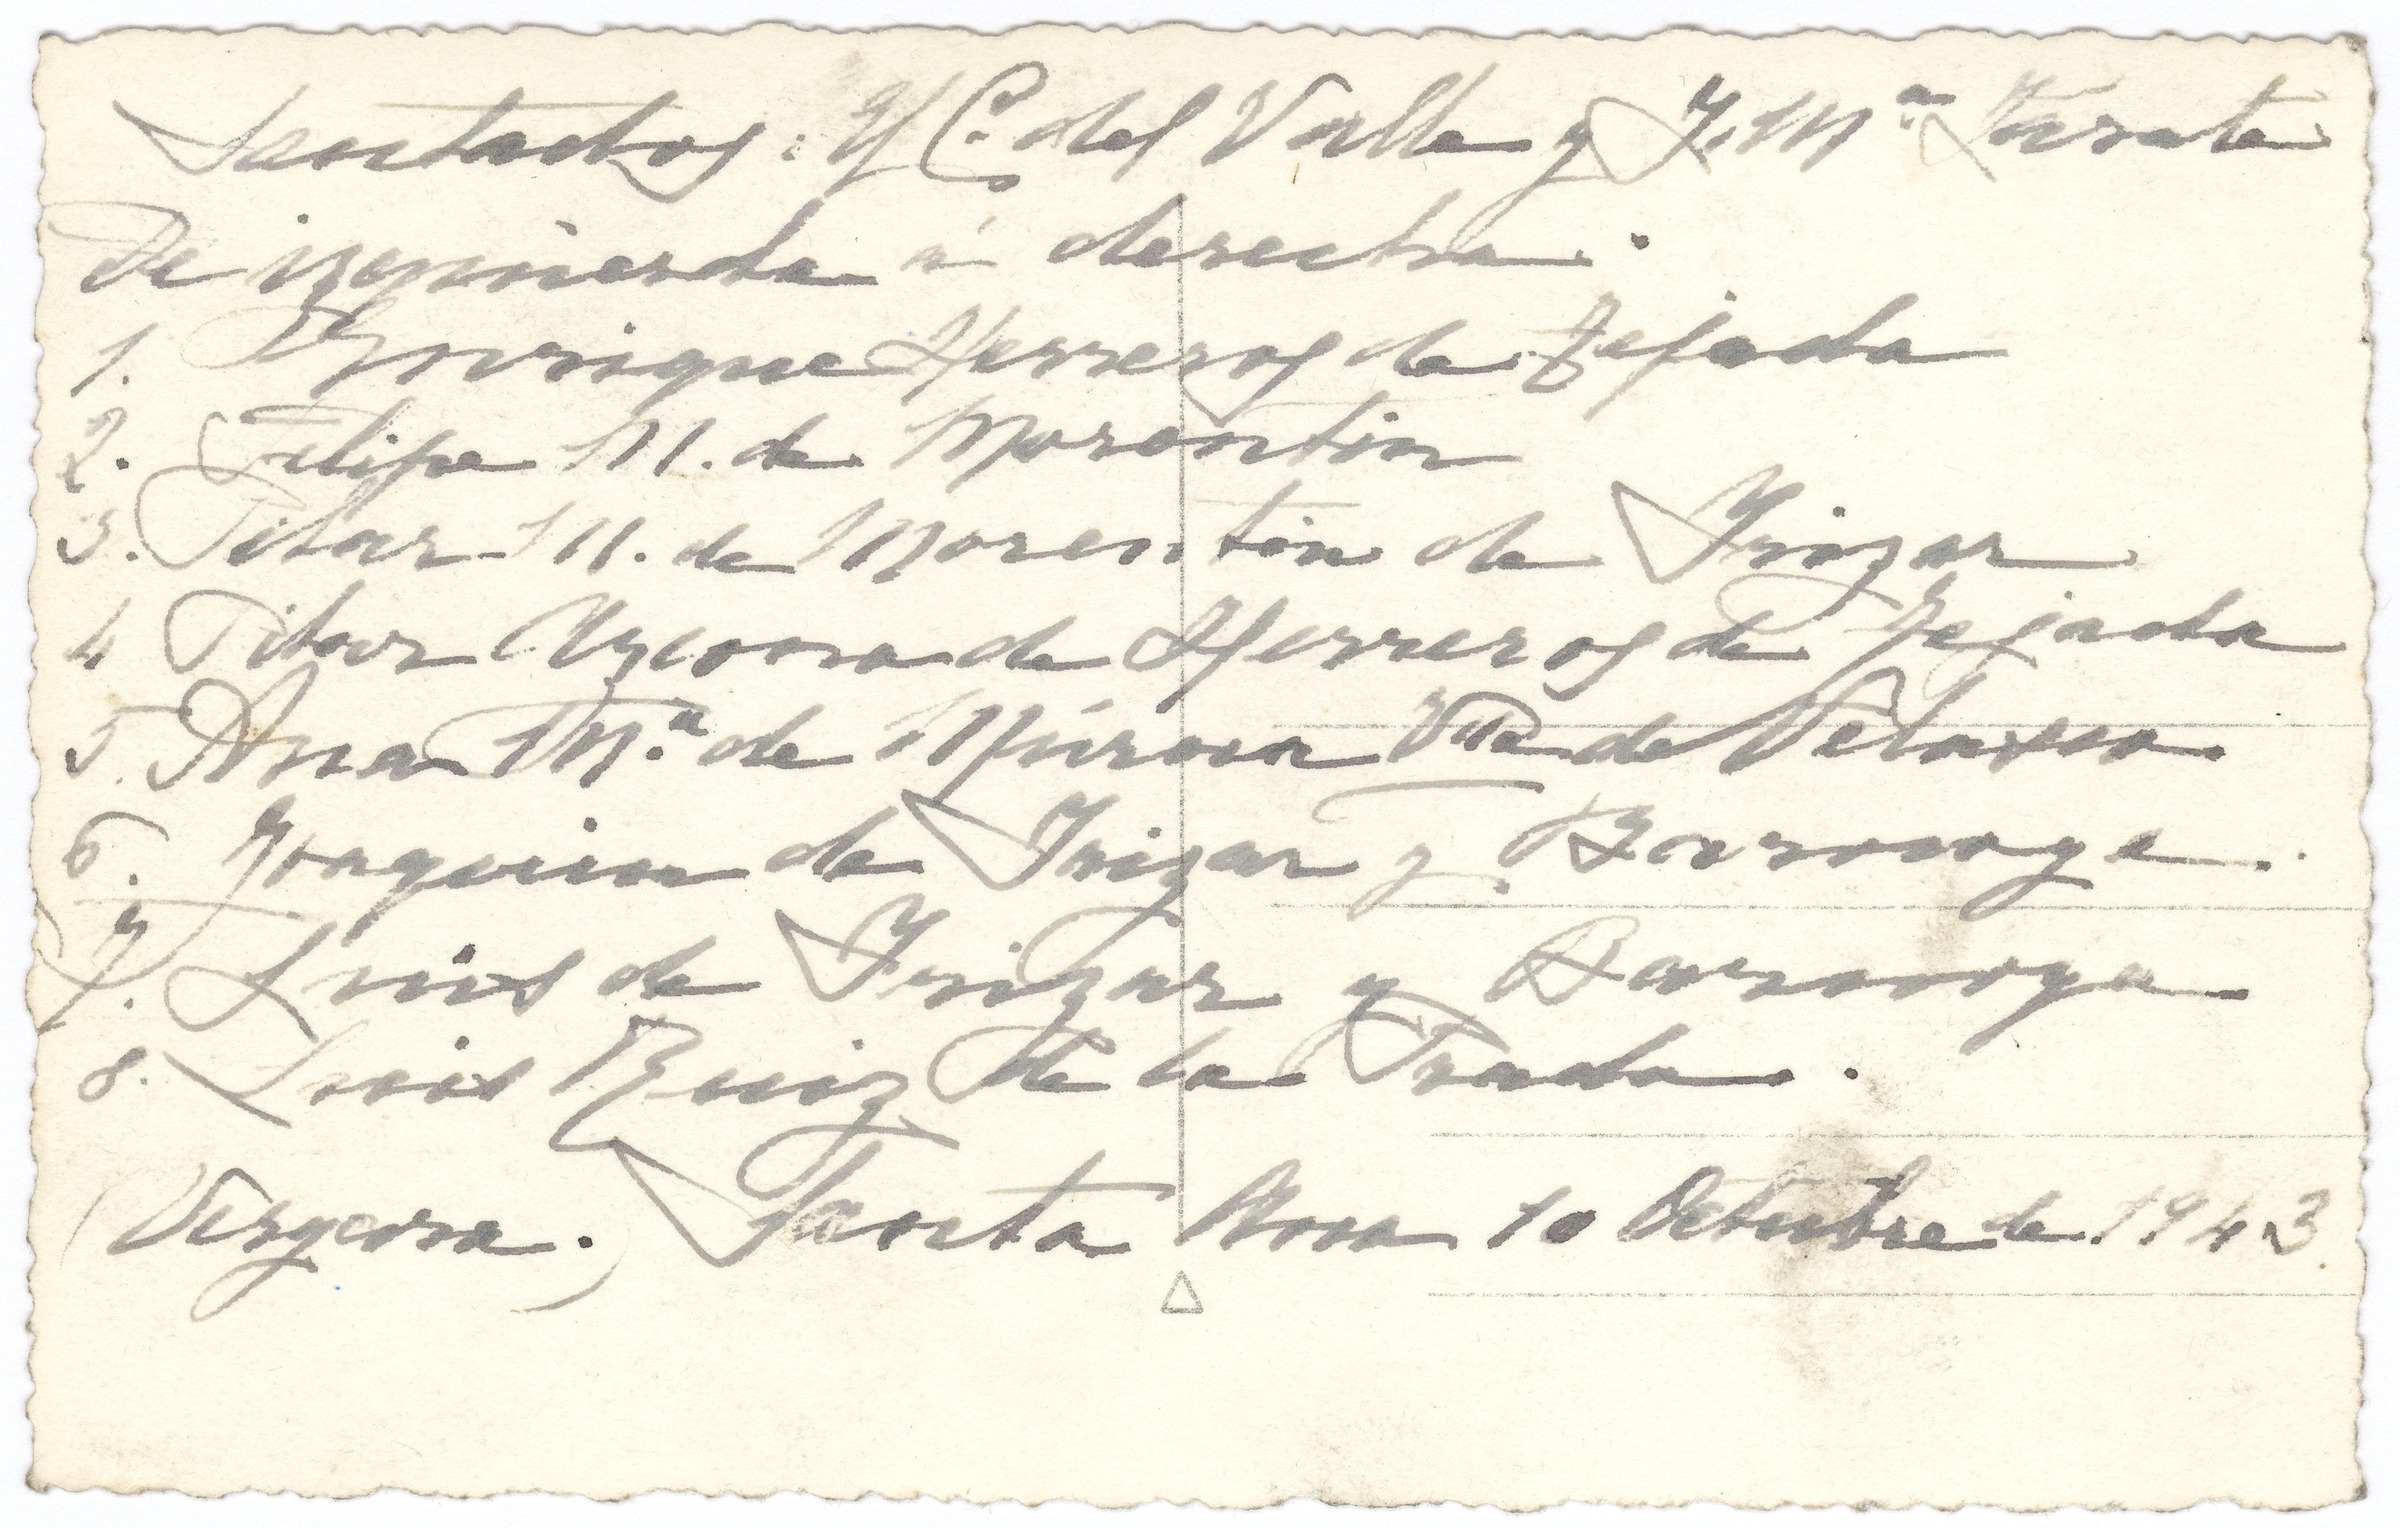 Sentados: Y C. del Valle y J. Mª Zarate
De izquierda á derecha.
1. Enrique Herreros de Tejada
2. Felipe M. de Morentin
3. Pilar M. de Morentin de Yrizar
4 Pilar Azcona de Herreros de Tejada
5. Ana Mª de Múrua Vda de Velasco.
6. Joaquin de Yrizar y Barnoya.
7. Luis de Yrizar y Barnoya
8. Luis Ruiz de la Prada.
(Vergara.) Santa Ana 10 Octubre de 1943.